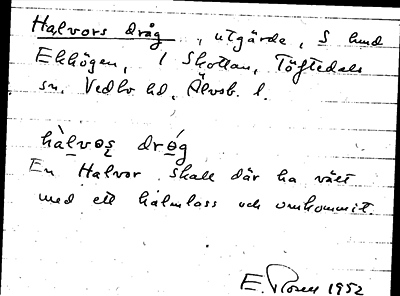 Halvors dråg, utgärde, S lund
Ekhögen, i Skottan, Töftedals
sn. Vedbo hd, Älvsb. l.
hàlvos dróg
En Halvor skall där ha vält
med ett halmlass och omkommit.
E. Rosell 1952